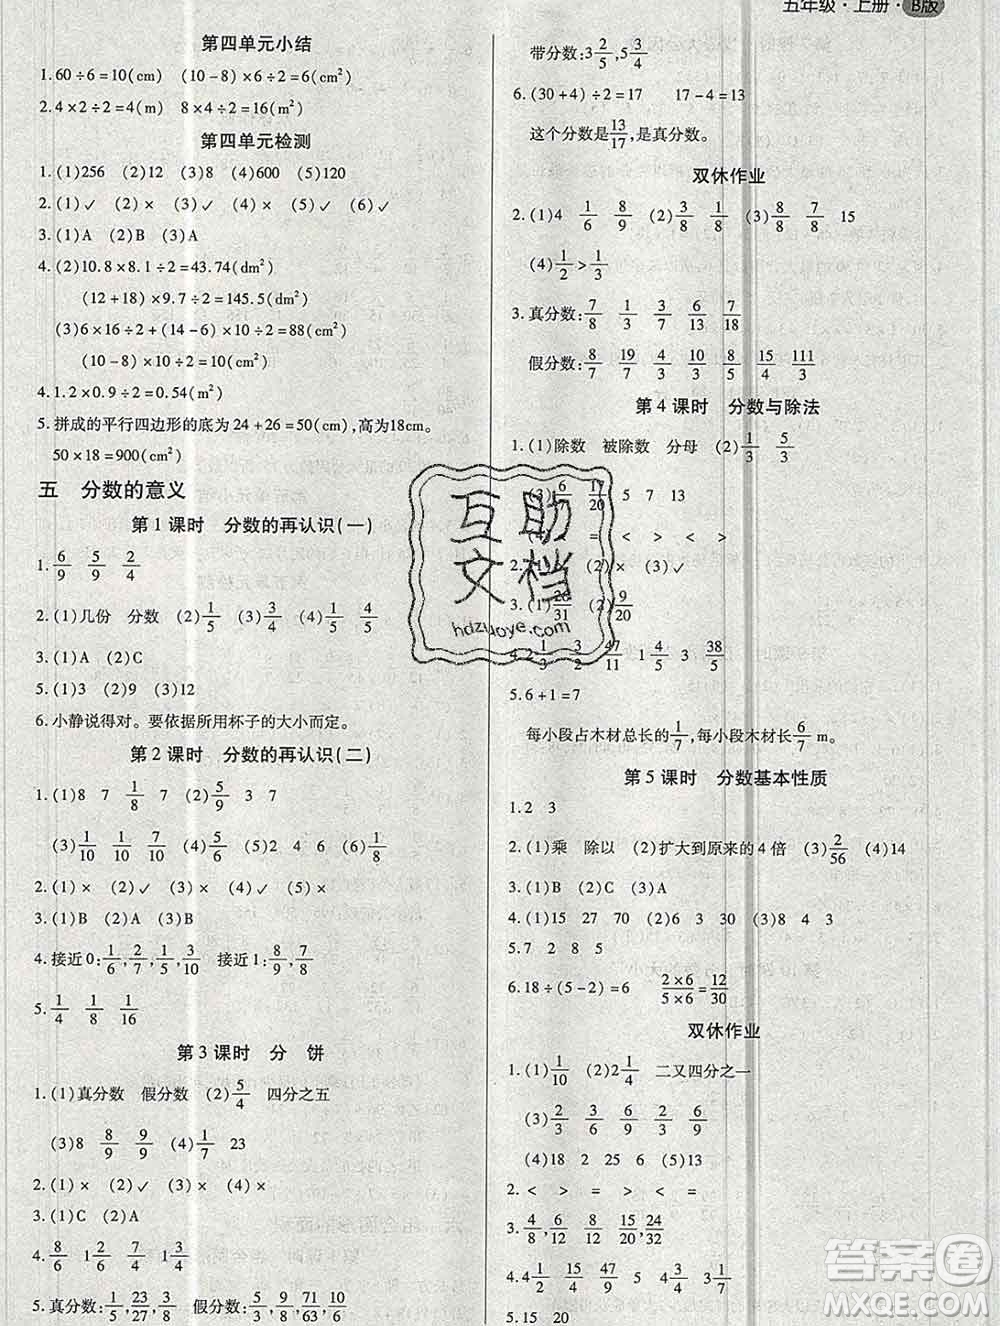 五年级·上册·B版
第四单元小结
1. 60÷6=10(cm) (10+10)×6÷2=60(cm²)
2. 4×2÷2=4(m) 8×4÷2=16(m²)
第四单元检测
1. (1)256 (2)12 (3)8 (4)600 (5)120
2. (1)✓ (2)× (3)✓ (4)✓ (5)✓ (6)×
3. (1)A (2)B (3)A
4. (2)10.8×8.1÷2=43.74(dm²)
(12+18)×9.7÷2=145.5(dm²)
(3)6×16÷2+(14-6)×10÷2=88(cm²)
(10-8)×10÷2=10(cm²)
4. 1.2×0.9÷2=0.54(m²)
5. 拼成的平行四边形的底为24+26=50(cm),高为18cm。
50×18=900(cm²)
五 分数的意义
第1课时 分数的再认识(一)
1. 6/9 5/9 2/4
2. (1)几份 分数 (2)1/5 (3)3/4 (4)1/5
3. (1)A (2)C
5. (1)3 (2)9 (3)12
6. 小静说得对。要依据所用杯子的大小而定。
第2课时 分数的再认识(二)
1. (1)8 7 1/8 (2)5/9 3 7
(3)1/10 1/10 (4)5/9 2/9 (5)6 (6)1/8
2. (1)× (2)✓ (3)× (4)✓
3. (1)B (2)A (3)B
4. 接近0:1/6,2/7,1/5,3/10 接近1:8/9,7/8
5. 1/4 1/8 1/16
第3课时 分 饼
1. (1)真分数 假分数 (2)5/4 四分之五
(3)8 8/9 9/9 (4)1/7 23
2. (1)✓ (2)× (3)× (4)×
3. (1)C (2)A
4. 8/6 1 2/6 7/4 1 3/4
5. 真分数:1/5,23/24,9/11 假分数:5/5,8/7,9/4
带分数:3 2/5,5 3/4
6. (30+4)÷2=17 17-4=13
这个分数是13/17,是真分数。
双休作业
2. (1)4 1/6 8/9 (2)3/8 1/8 (3)8/8 7/8 15
(4)1/2>1/3
3. 真分数:7/8 1/3 6/13 7/18
假分数:8/7 19/7 4/3 8/5 15/4 111/3
第4课时 分数与除法
1. (1)除数 被除数 分母 (2)1/3 5/3
(3)6/9 17/20 5 7 13
= < > < >
(2)× (3)✓
3. (1)26/31 (2)9/20
4. 2 1/3 3/2 47/11 1 4/5 3 38/5
5. 6+1=7
每小段占木材总长的1/7,每小段木材长6/7 m。
第5课时 分数基本性质
1. 2 3
2. (1)乘 除以 (2)扩大到原来的4倍 (3)2/56 (4)14
3. (1)B (2)C (3)A
4. (1)15 27 70 (2)6 3 30 (3)8 2 4
5. 7 2 8 5
6. 18÷(5-2)=6 2×6/5×6=12/30
双休作业
1. (1)1/10 (2)2 1/4 二又四分之一
(3)2/7 3/7 4/9 6/9
(4)18 25 12 6 (5)13
2. < > > < =
3. 4/8 9/6 15/35 14/22
4. 4 4/5 15/2 47/9 5 2/3
5. 15 20
互助文档
hdzuoye.com
答案圈
MXQE.COM